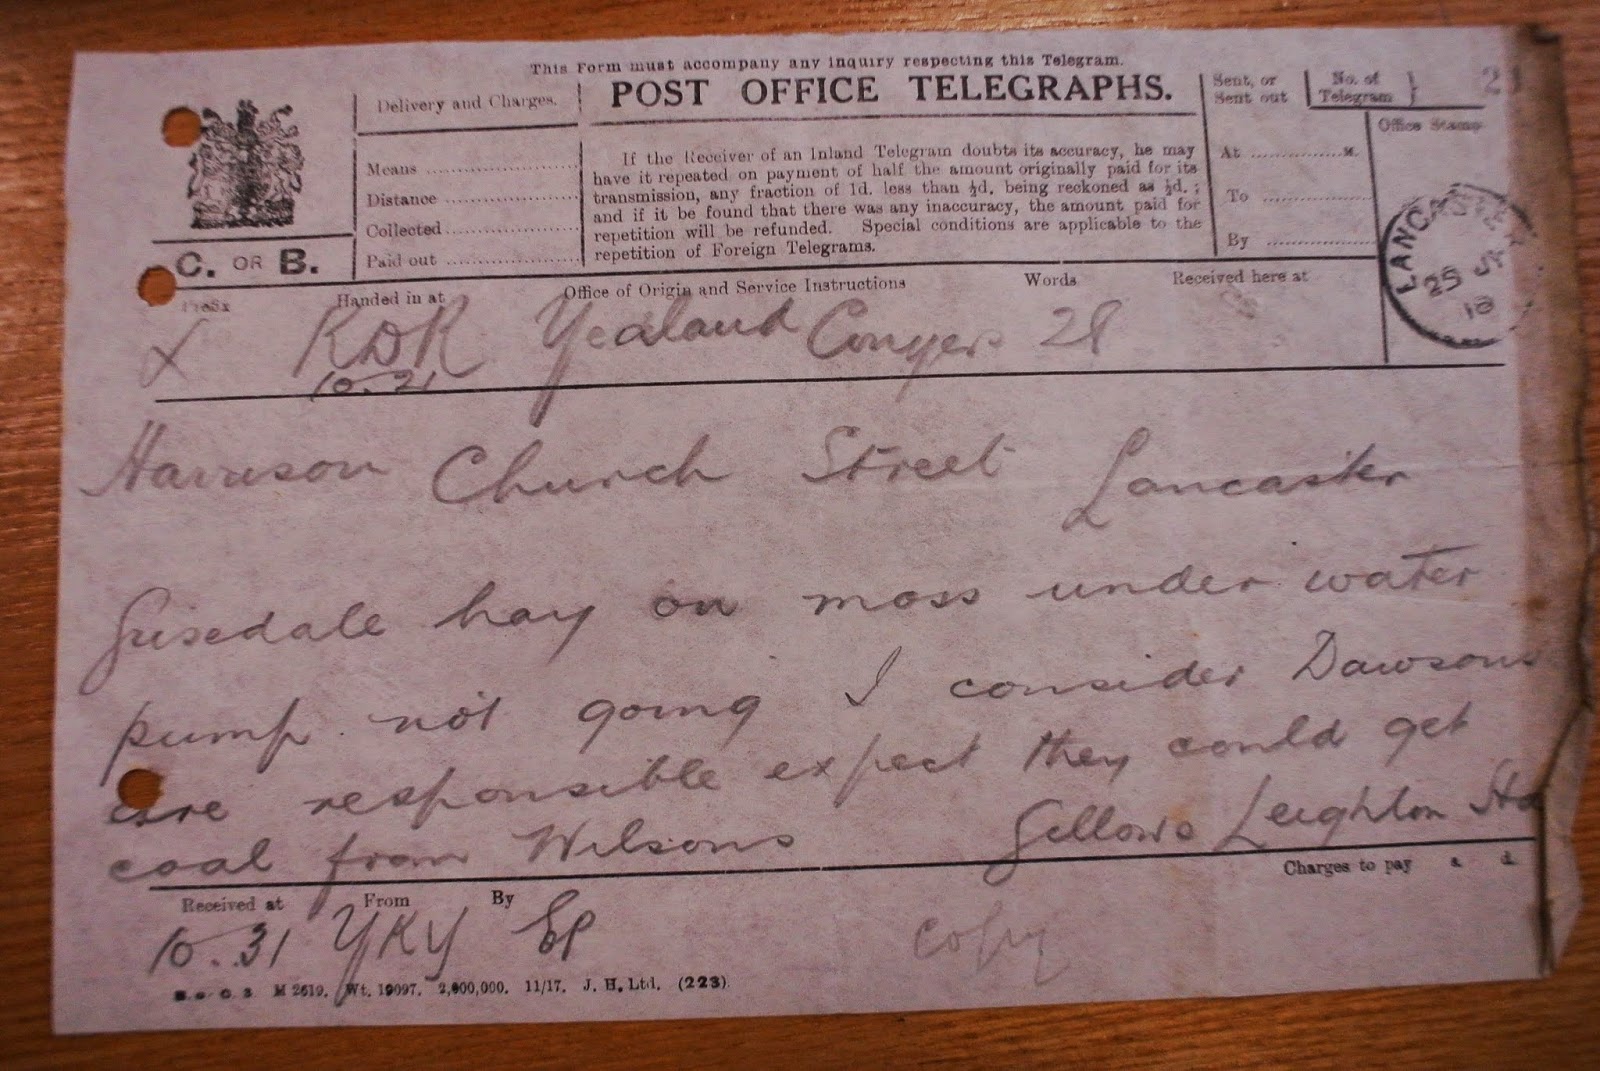 This Form must accompany any inquiry respecting this Telegram.
POST OFFICE TELEGRAPHS.
Delivery and Charges.
Means
Distance
Collected
Paid out
If the Receiver of an Inland Telegram doubts its accuracy, he may
have it repeated on payment of half the amount originally paid for its
transmission, any fraction of 1d. less than ½d. being reckoned as ½d.;
and if it be found that there was any inaccuracy, the amount paid for
repetition will be refunded. Special conditions are applicable to the
repetition of Foreign Telegrams.
Sent, or
Sent out
At M.
To
By
No. of
Telegram
Office Stamp
LANCASTER
25
18
C. OR B.
Prefix Handed in at Office of Origin and Service Instructions Words Received here at
X KDK Yealand Conyers 28
10.21
Harrison Church Street Lancaster
Grisedale hay on moss under water
pump not going I consider Dawsons
are responsible expect they could get
coal from Wilsons Leighton
Charges to pay s. d.
Received at From By
10.31 YKY
copy
M 2619. Wt. 19097. 2,000,000. 11/17. J. H. Ltd. (223).